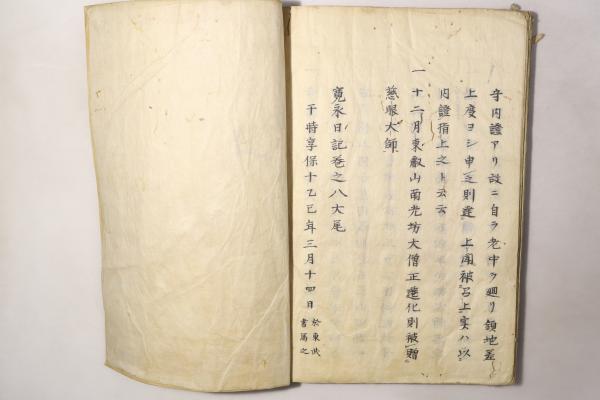 守内證アリ設ニ自ラ老中ヲ廻リ領地差
上度ヨシ申之則達 上聞被召上実ハ以
内證指上之ト云云
一 十二月東叡山南光坊大僧正遷化則被贈
慈眼大師
寛永日記巻之八大尾
于時享保十乙巳年三月十四日
於東武
書写之